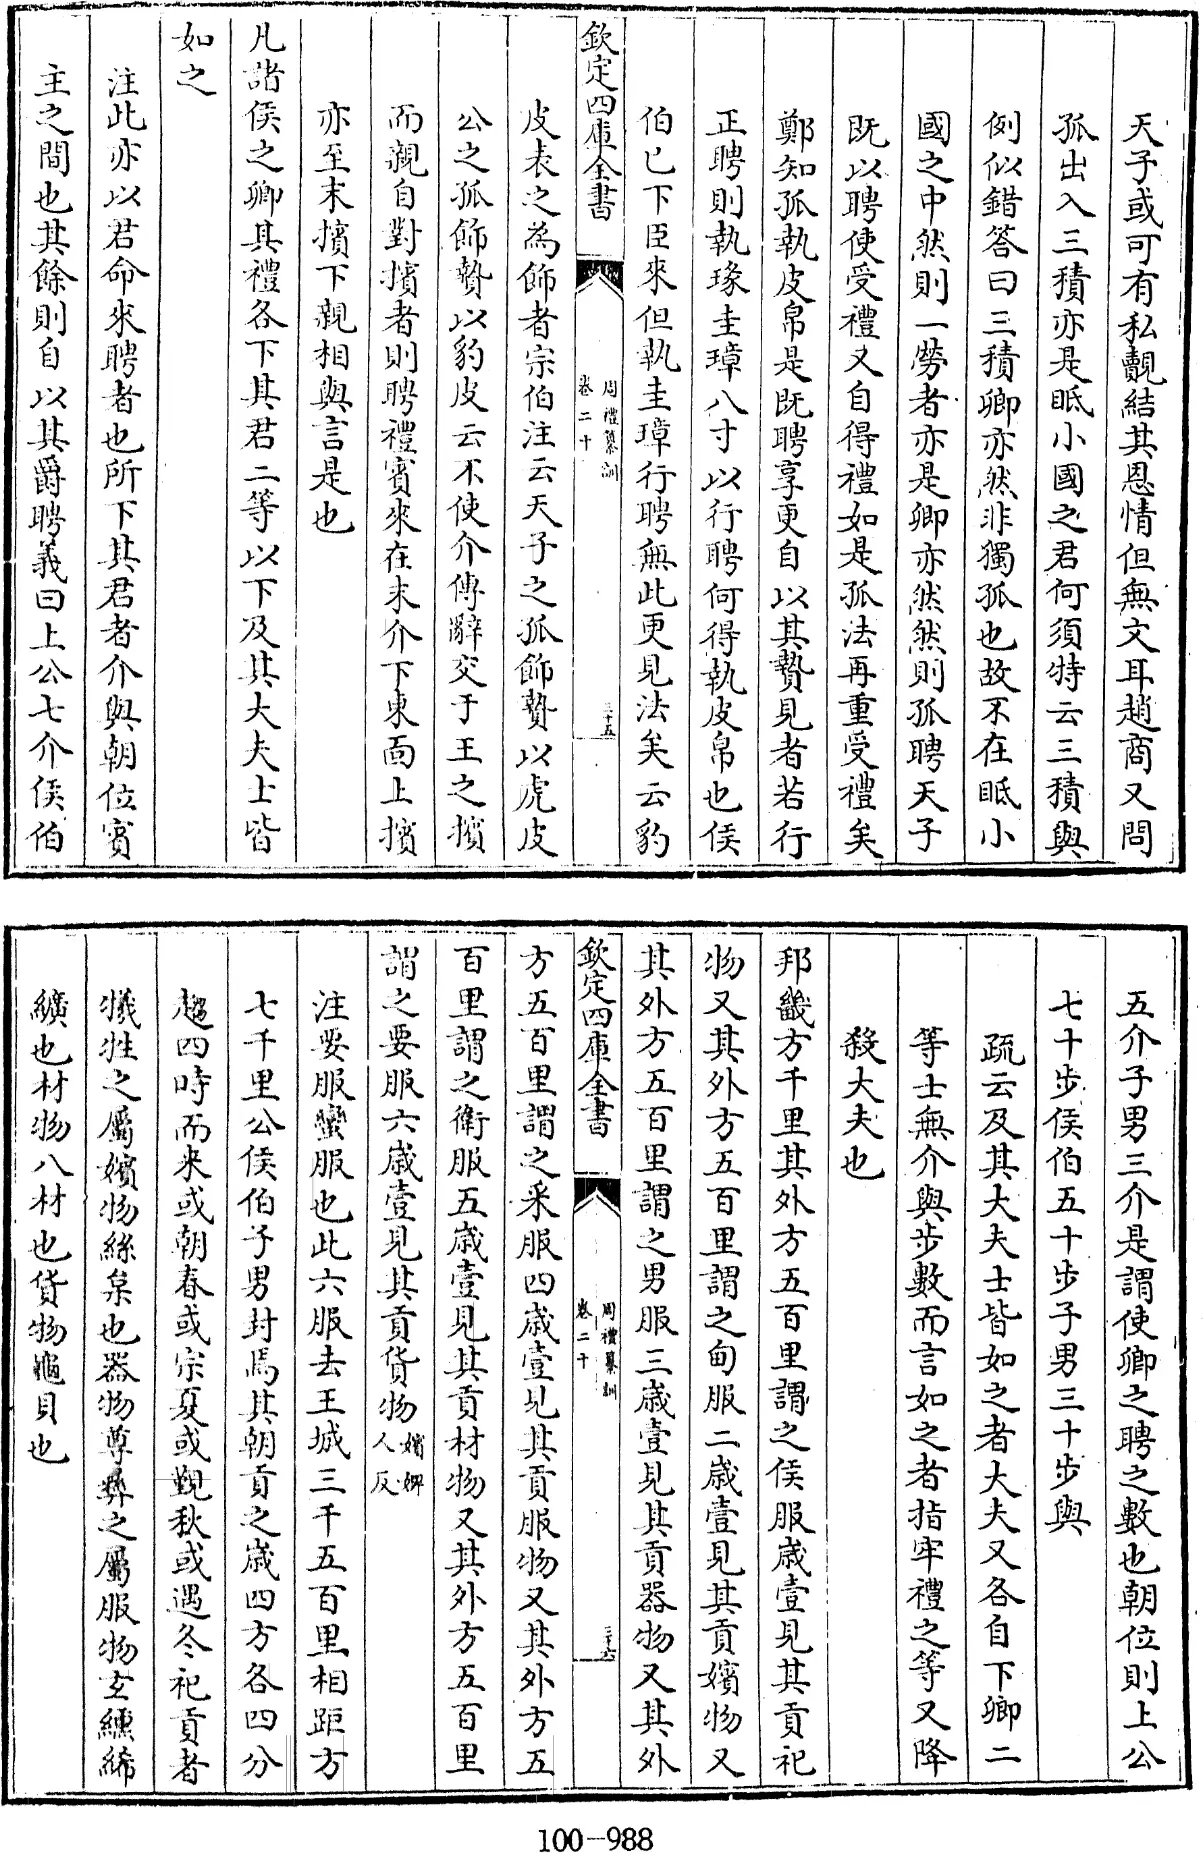 天子或可有私覿結其恩情但無文耳趙商又問
孤出入三積亦是眂小國之君何須特云三積與
例似錯答曰三積卿亦然非獨孤也故不在眂小
國之中然則一勞者亦是卿亦然然則孤聘天子
既以聘使受禮又自得禮如是孤法再重受禮矣
鄭知孤執皮帛是既聘享更自以其贄見者若行
正聘則執瑑圭璋八寸以行聘何得執皮帛也侯
伯已下臣來但執圭璋行聘無此更見法矣云豹
欽定四庫全書
周禮纂訓
卷二十
三十五
皮表之為飾者宗伯注云天子之孤飾贄以虎皮
公之孤飾贄以豹皮云不使介傳辭交于王之擯
而親自對擯者則聘禮賓來在末介下東面上擯
亦至末擯下親相與言是也
凡諸侯之卿其禮各下其君二等以下及其大夫士皆
如之
注此亦以君命來聘者也所下其君者介與朝位賓
主之間也其餘則自以其爵聘義曰上公七介侯伯
五介子男三介是謂使卿之聘之數也朝位則上公
七十步侯伯五十步子男三十步與
疏云及其大夫士皆如之者大夫又各自下卿二
等士無介與步數而言如之者指牢禮之等又降
殺大夫也
邦畿方千里其外方五百里謂之侯服歲壹見其貢祀
物又其外方五百里謂之甸服二歲壹見其貢嬪物又
其外方五百里謂之男服三歲壹見其貢器物又其外
欽定四庫全書
周禮纂訓
卷二十
三十六
方五百里謂之采服四歲壹見其貢服物又其外方五
百里謂之衛服五歲壹見其貢材物又其外方五百里
謂之要服六歲壹見其貢貨物嬪婢人反
注要服蠻服也此六服去王城三千五百里相距方
七千里公侯伯子男封焉其朝貢之歲四方各四分
趨四時而來或朝春或宗夏或覲秋或遇冬祀貢者
犧牲之屬嬪物絲枲也器物尊彝之屬服物玄纁絺
纊也材物八材也貨物龜貝也
100-988